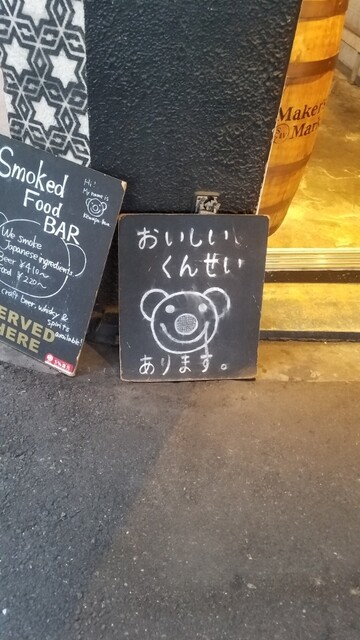 Smoked
Food
BAR
Hi!
My name is
We smoke
Japanese ingredients.
Beer ¥410~
Food ¥220~
craft beer, whisky &
spirits
available!
SERVED
HERE
おいしい
くんせい
あります。
Maker's
Mark